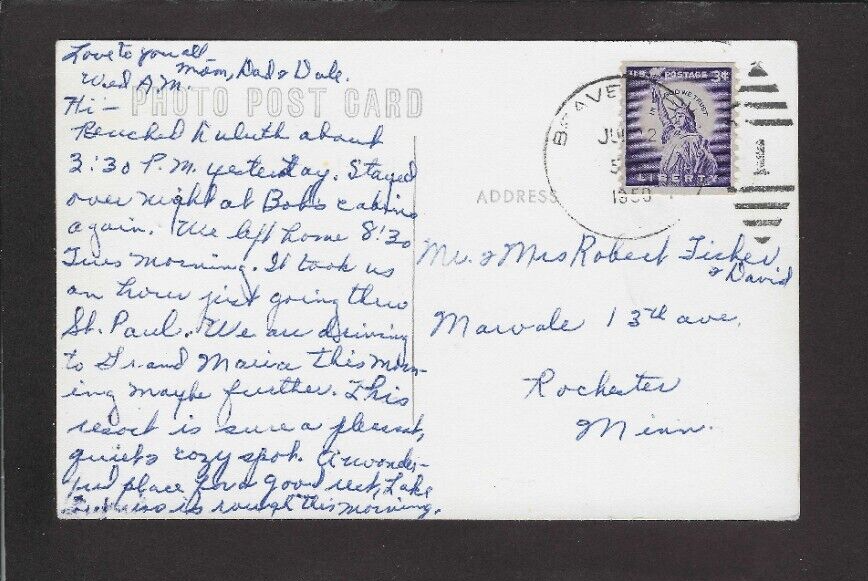 Love to you all -
Mom, Dad & Dale.
Wed A.M.
Hi -
PHOTO POST CARD
Reached Duluth about
3:30 P.M. yesterday. Stayed
over night at Bob's cabins
again. We left home 8:30
Tues morning. It took us
an hour just going thru
St. Paul. We are driving
to Grand Marais this morn-
ing maybe further. This
resort is sure a pleasant,
quiet & cozy spot. A wonder-
ful place for a good rest, Lake
is rough this morning.
U.S. POSTAGE 3¢
IN GOD WE TRUST
LIBERTY
BEAVER
JUL
ADDRESS
Mr. & Mrs Robert Fisher
& David
Marvale 13th ave.
Rochester
Minn.